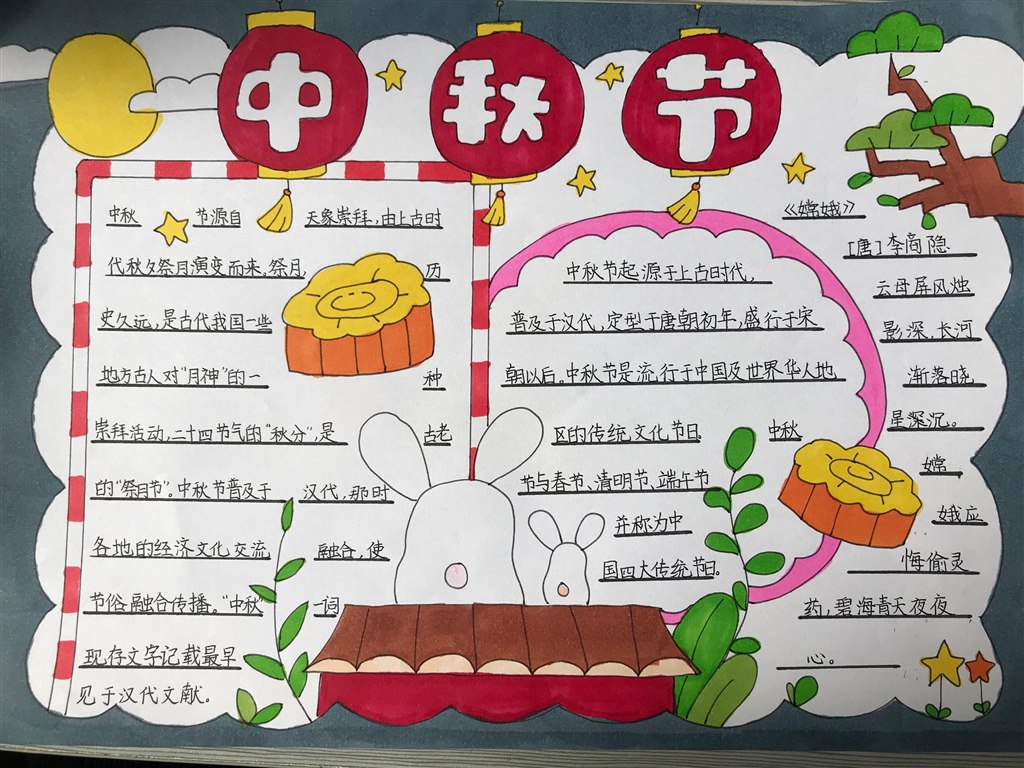 中秋节
中秋 节源自 天象崇拜,由上古时
代秋夕祭月演变而来。祭月 历
史久远,是古代我国一些
地方古人对“月神”的一 种
崇拜活动,二十四节气的“秋分”,是 古老
的“祭月节”。中秋节普及于 汉代,那时
各地的经济文化交流 融合,使
节俗融合传播。“中秋” 一词
现存文字记载最早
见于汉代文献.
中秋节起源于上古时代,
普及于汉代,定型于唐朝初年,盛行于宋
朝以后。中秋节是流行于中国及世界华人地
区的传统文化节日 中秋
节与春节、清明节、端午节
并称为中
国四大传统节日。
《嫦娥》
[唐]李商隐
云母屏风烛
影深,长河
渐落晓
星深沉。
嫦
娥应
悔偷灵
药,碧海青天夜夜
心。